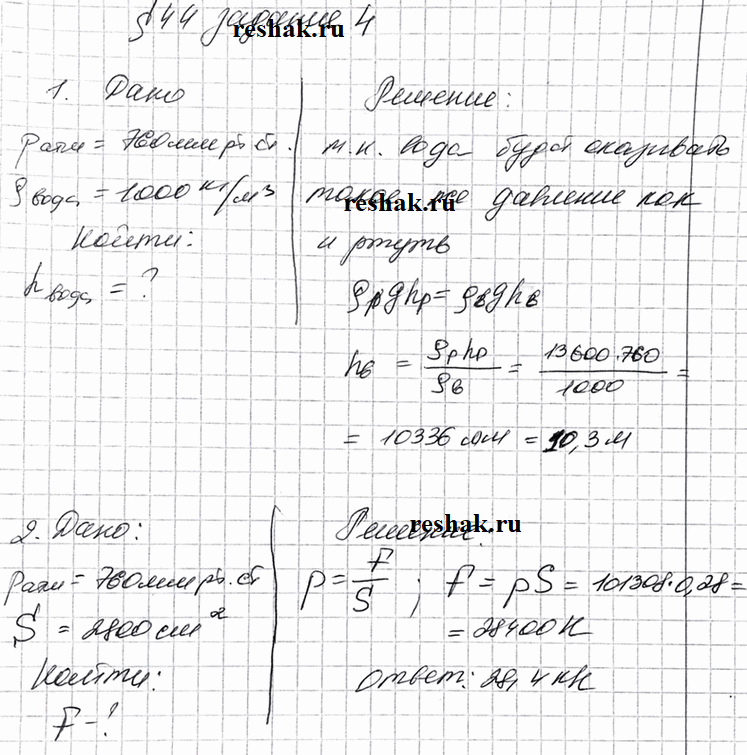 §44 задание 4
reshak.ru
1. Дано
Pатм = 760мм рт. ст.
ρвода = 1000 кг/м³
Найти:
hвода = ?
Решение:
т.к. вода будет оказывать
такое же давление как
reshak.ru
и ртуть
ρpghp = ρвghв
hв = ρphp/ρв = 13600·760/1000 =
= 10336 мм = 10,3 м
2. Дано:
Pатм = 760мм рт. ст
S = 2800 см²
Найти:
F - ?
Решение:
reshak.ru
p = F/S ; F = pS = 101308·0,28 =
= 28400 Н
Ответ: 28,4 кН